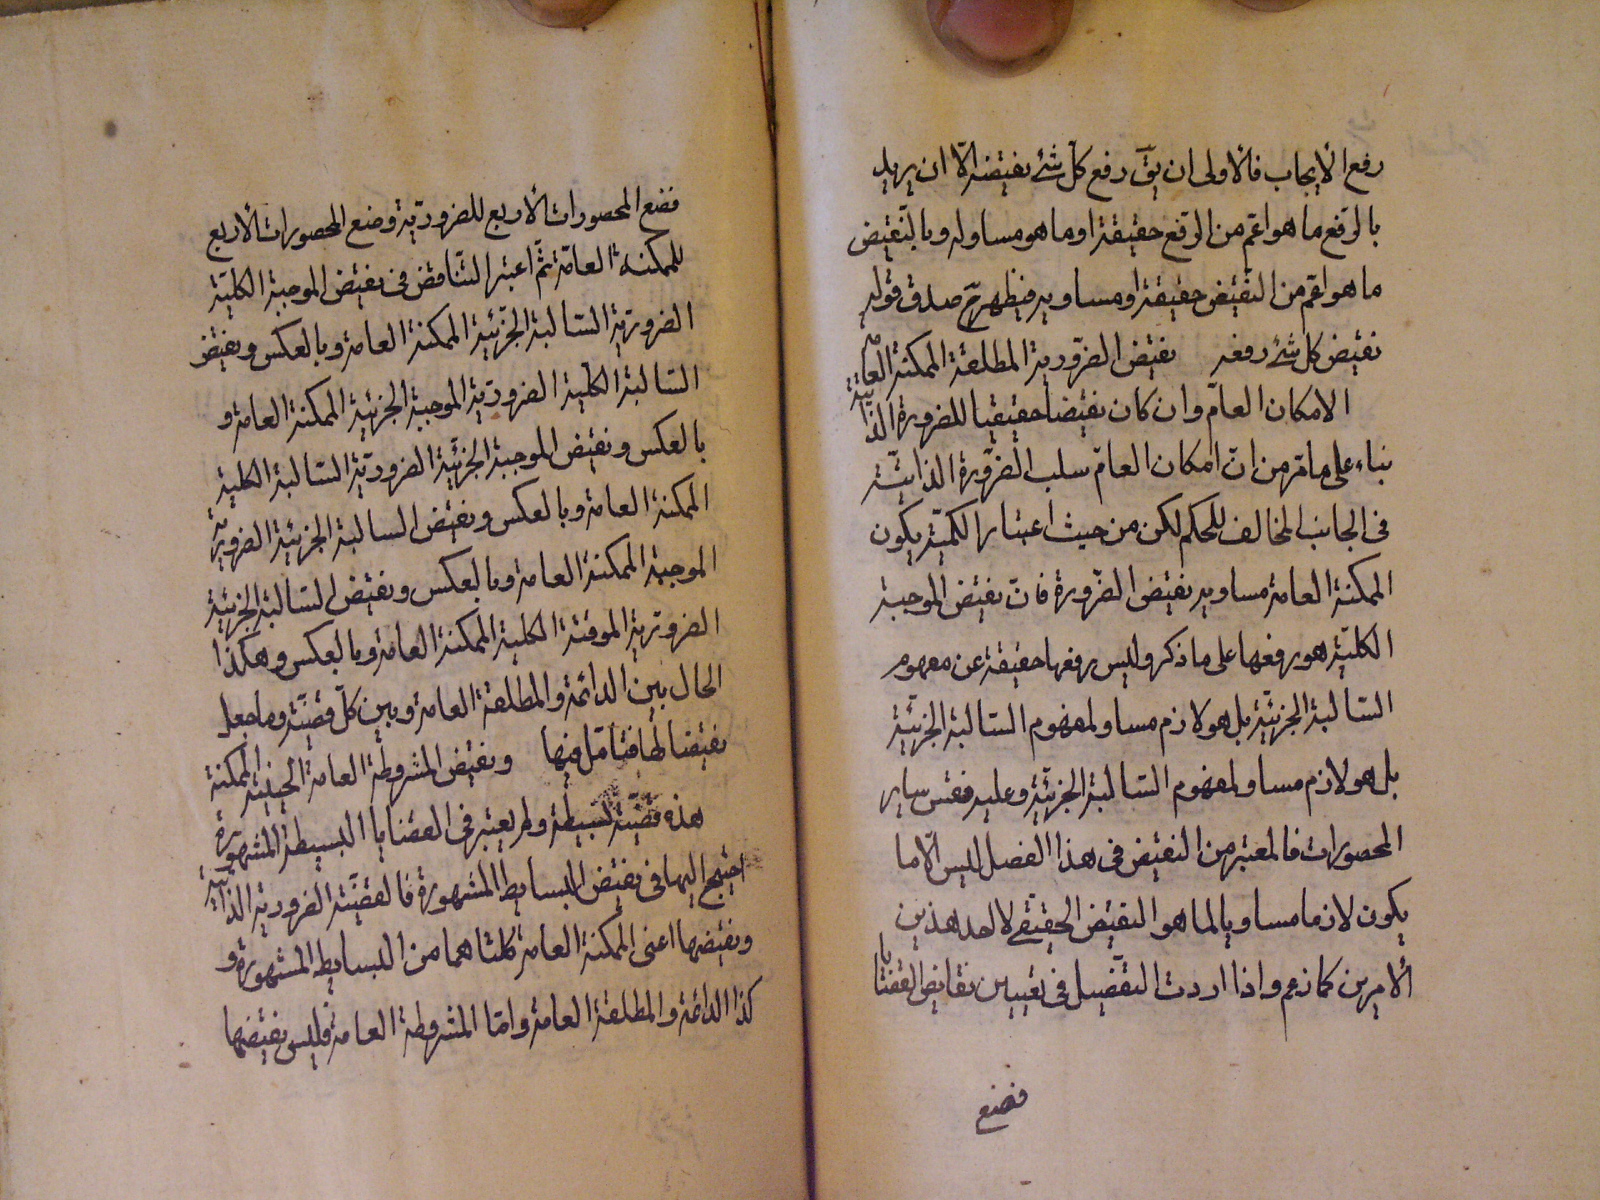 رفع الايجاب فالاولى ان يقٓ رفع كل شئ نقيضه الّا ان يريد
بالرّفع ما هو اعمّ من الرّفع حقيقة او ما هو مساو له وبالنّقيض
ما هو اعمّ من النّقيض حقيقة او مساويه فيظهر ح صدق قوله
نقيض كل شئ رفعه نقيض الضّرورية المطلقة الممكنة العامّة
الامكان العامّ وان كان نقيضا حقيقيا للضرورة الذّاتيّة
بناء على ما مرّ من انّ امكان العامّ سلب الضّرورة الذاتيّة
فى الجانب المخالف للحكم لكن من حيث اعتبار الكميّة يكون
الممكنة العامة مساويه نقيض الضّرورة فانّ نقيض الموجبة
الكليّة هو رفعها على ما ذكر وليس رفعها حقيقة عن مفهوم
السّالبة الجزئيّة بل هو لازم مساو لمفهوم السّالبة الجزئيّة
بل هو لازم مساو لمفهوم السّالبة الجزئيّة وعليه فقس ساير
المحصورات فالمعتبر من النقيض فى هذا الفصل ليس الّا ما
يكون لازما مساويا لما هو النقيض الحقيقى لاحد هذين
الامرين كما زعم واذا اردت التفصيل فى تعيين نقايض القضايا
فضع
فضع المحصورات الاربع للضروريّة وضع المحصورات الاربع
للممكنة العامّة ثمّ اعتبر التّناقض فى نقيض الموجبة الكليّة
الضروريّة السّالبة الجزّئية الممكنة العامة وبالعكس ونقيض
السّالبة الكلّية الضروريّة الموجبة الجزئيّة الممكنة العامة و
بالعكس ونقيض الموجبة الجزئيّة الضروريّة السّالبة الكلية
الممكنة العامة وبالعكس ونقيض السالبة الجزئيّة الضروريّة
الموجبة الممكنة العامة وبالعكس ونقيض السّالبة الجزئيّة
الضروريّة الموقتة الكلية الممكنة العامة وبالعكس وهكذا
الحال بين الدائمة والمطلقة العامة وبين كلّ قضيّة وما جعل
نقيضا لها فتامّل فيها ونقيض المشروطة العامة الحينية الممكنة
هذه قضيّة بسيطة ولم يعتبر فى القضايا البسيطة المشهورة
احتيج اليها فى نقيض البسايط المشهورة فالقضيّة الضرورية الذاتيّة
ونقيضها اعنى الممكنة العامة كلتاهما من البسايط المشهورة و
كذا الدائمة والمطلقة العامة وامّا المشروطة العامة فليس نقيضها